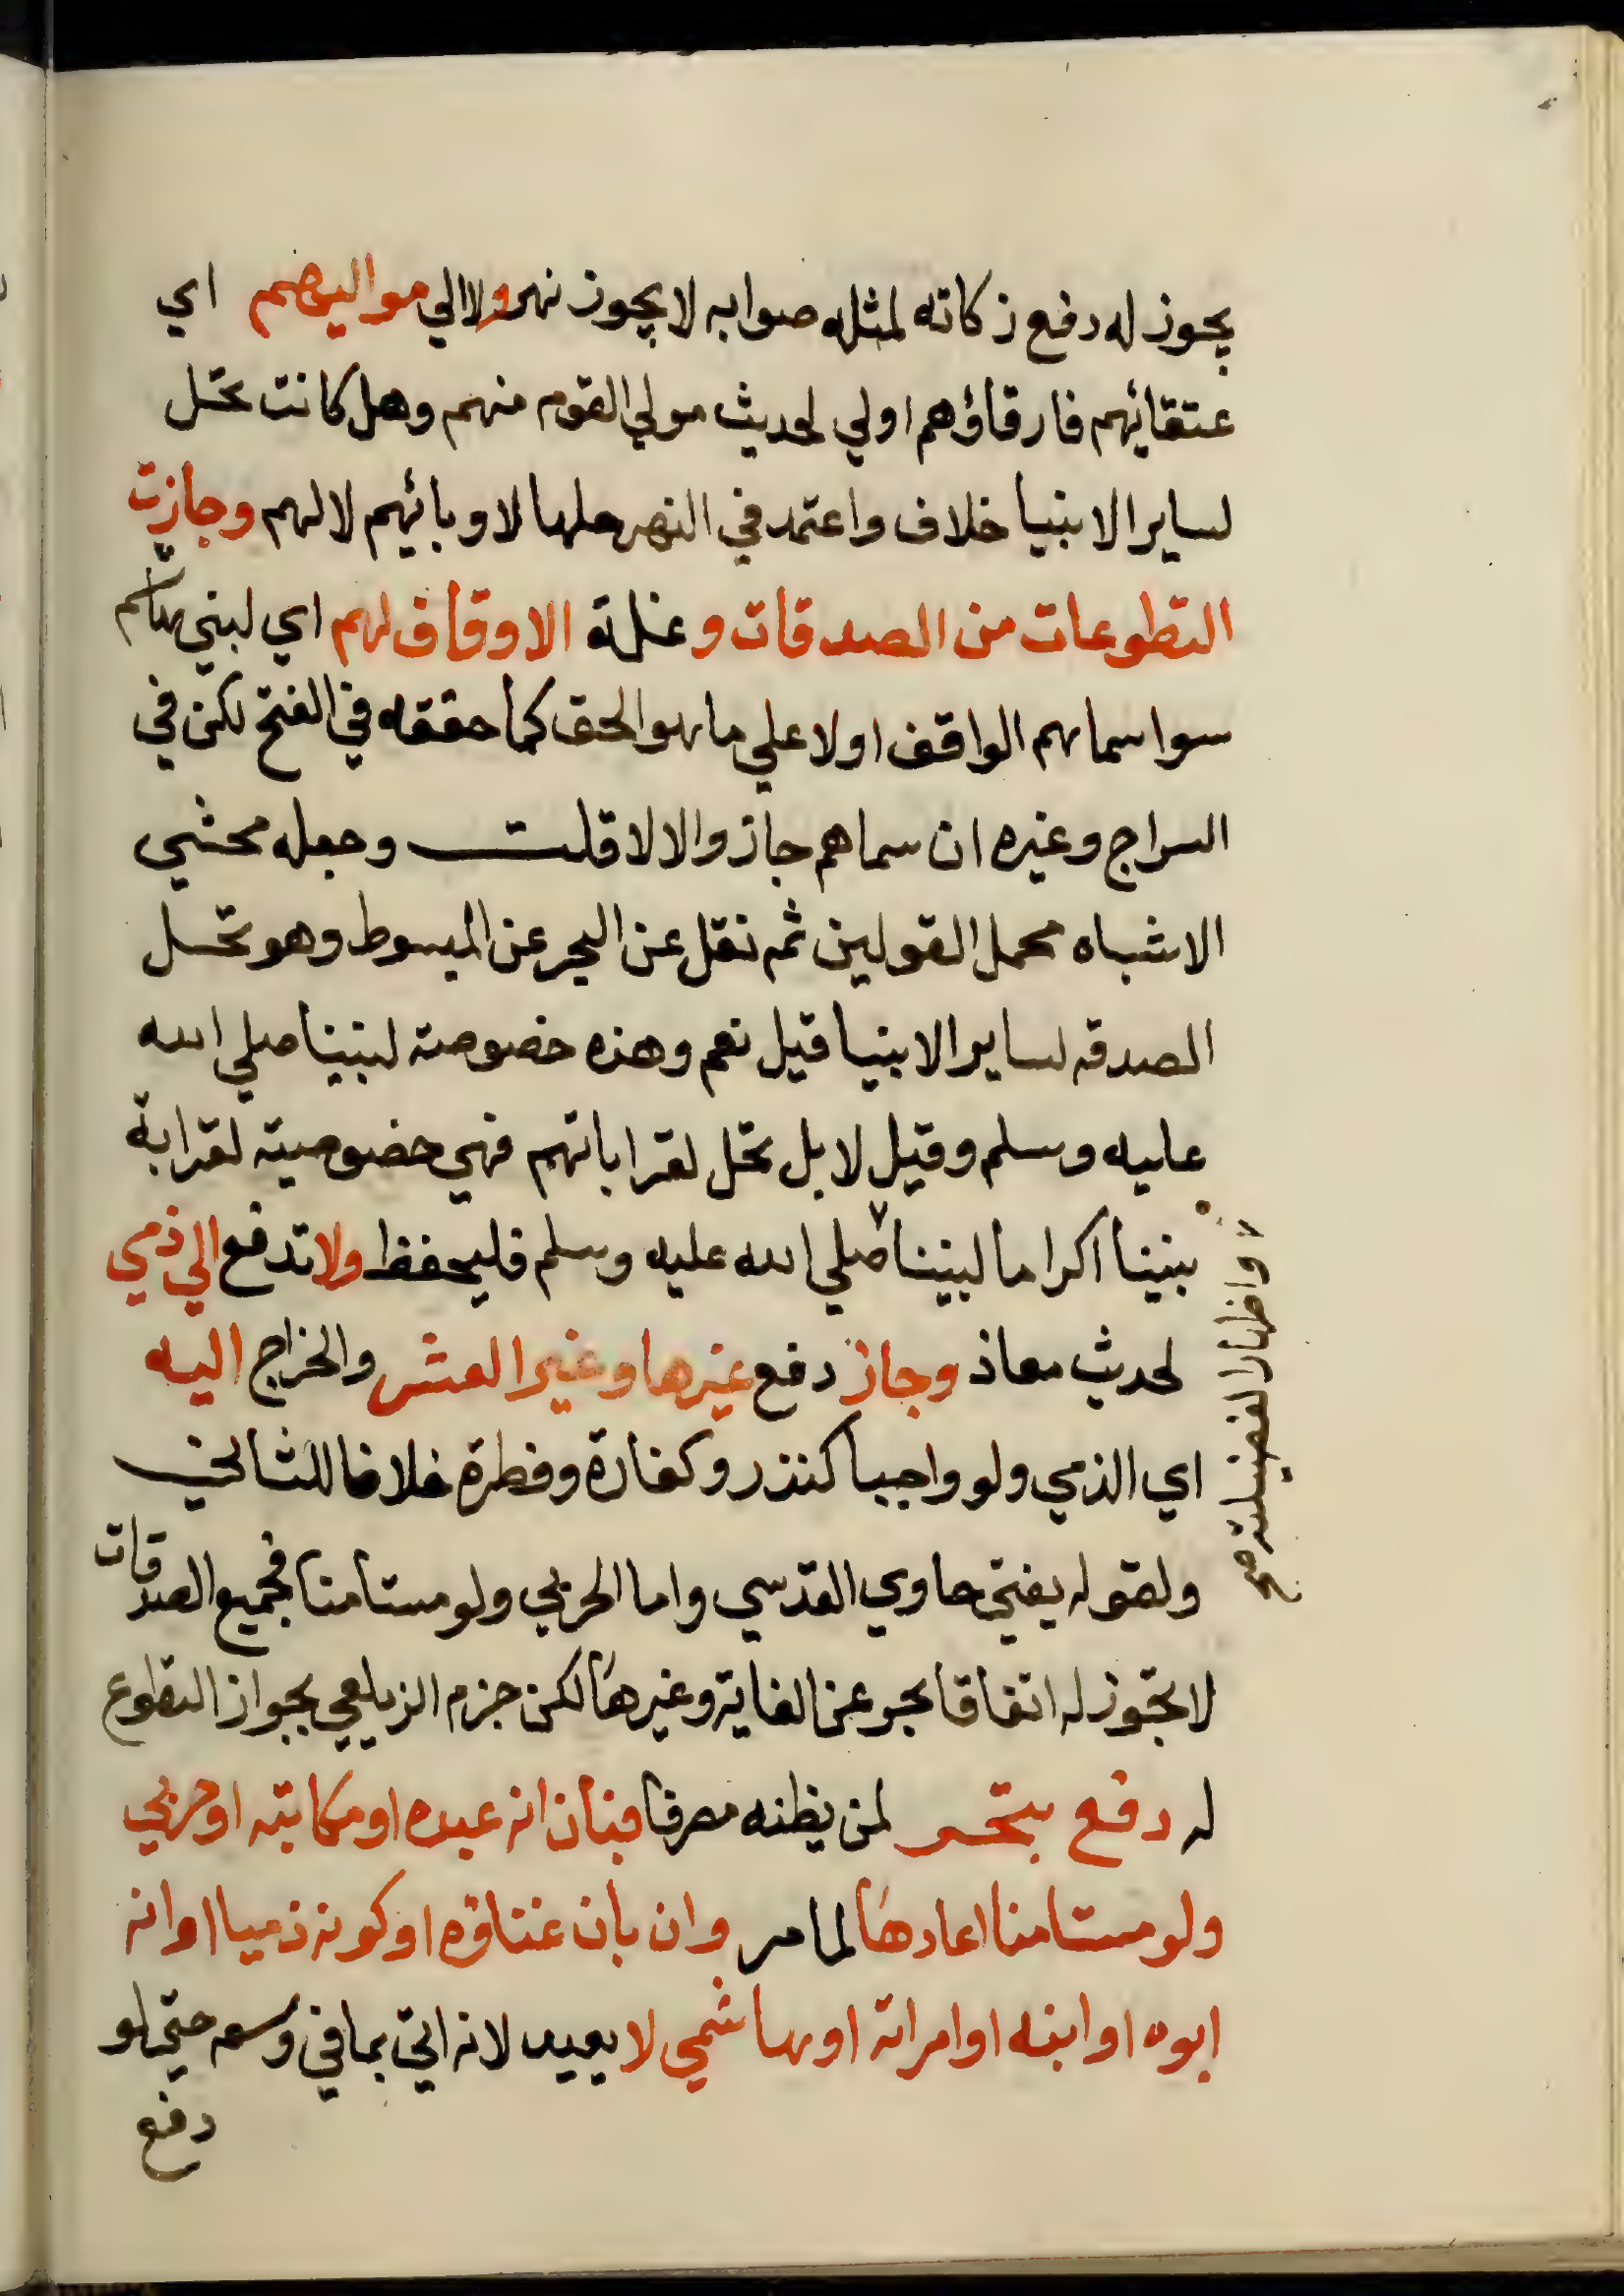 يجوز له دفع زكاته لمثله صوابه لا يجوز نهر ولا الي مواليهم اي
عتقائهم فارقاؤهم اولي لحديث مولي القوم منهم وهل كانت تحل
لساير الانبيا خلاف واعتمد في النهر حلها لاوبائهم لا لهم وجازت
التطوعات من الصدقات وغلة الاوقاف لهم اي لبني هاشم
سوا سماهم الواقف اولا علي ما هو الحق كما حققه في الفتح لكن في
السراج وغيره ان سماهم جاز والا لا قلت وجعله محشي
الاشباه محمل القولين ثم نقل عن البحر عن المبسوط وهو تحل
الصدقه لساير الانبيا قيل نعم وهذه خصوصة لنبينا صلي الله
عليه وسلم وقيل لا بل تحل لقراباتهم فهي خصوصية لقرابة
نبينا اكراما لنبينا صلي الله عليه وسلم فليحفظ ولا تدفع الي ذمي
لحديث معاذ وجاز دفع غيرها وغير العشر والخراج اليه
اي الذمي ولو واجبا كنذر وكفارة وفطرة خلافا للثاني
ولقوله يفتي حاوي القدسي واما الحربي ولو مستامنا فجميع الصدقات
لا تجوز له اتفاقا بحر عن الغاية وغيرها لكن جزم الزيلعي بجواز التطوع
له دفع بتحر لمن يظنه مصرفا فبان انه عبده او مكاتبه او حربي
ولو مستامنا اعادها لما مر وان بان غناؤه او كونه ذميا او انه
ابوه او ابنه او امراته او هاشمي لا يعيد لانه اتي بما في وسعه حتي لو
دفع
واظهار الفضيلته صح